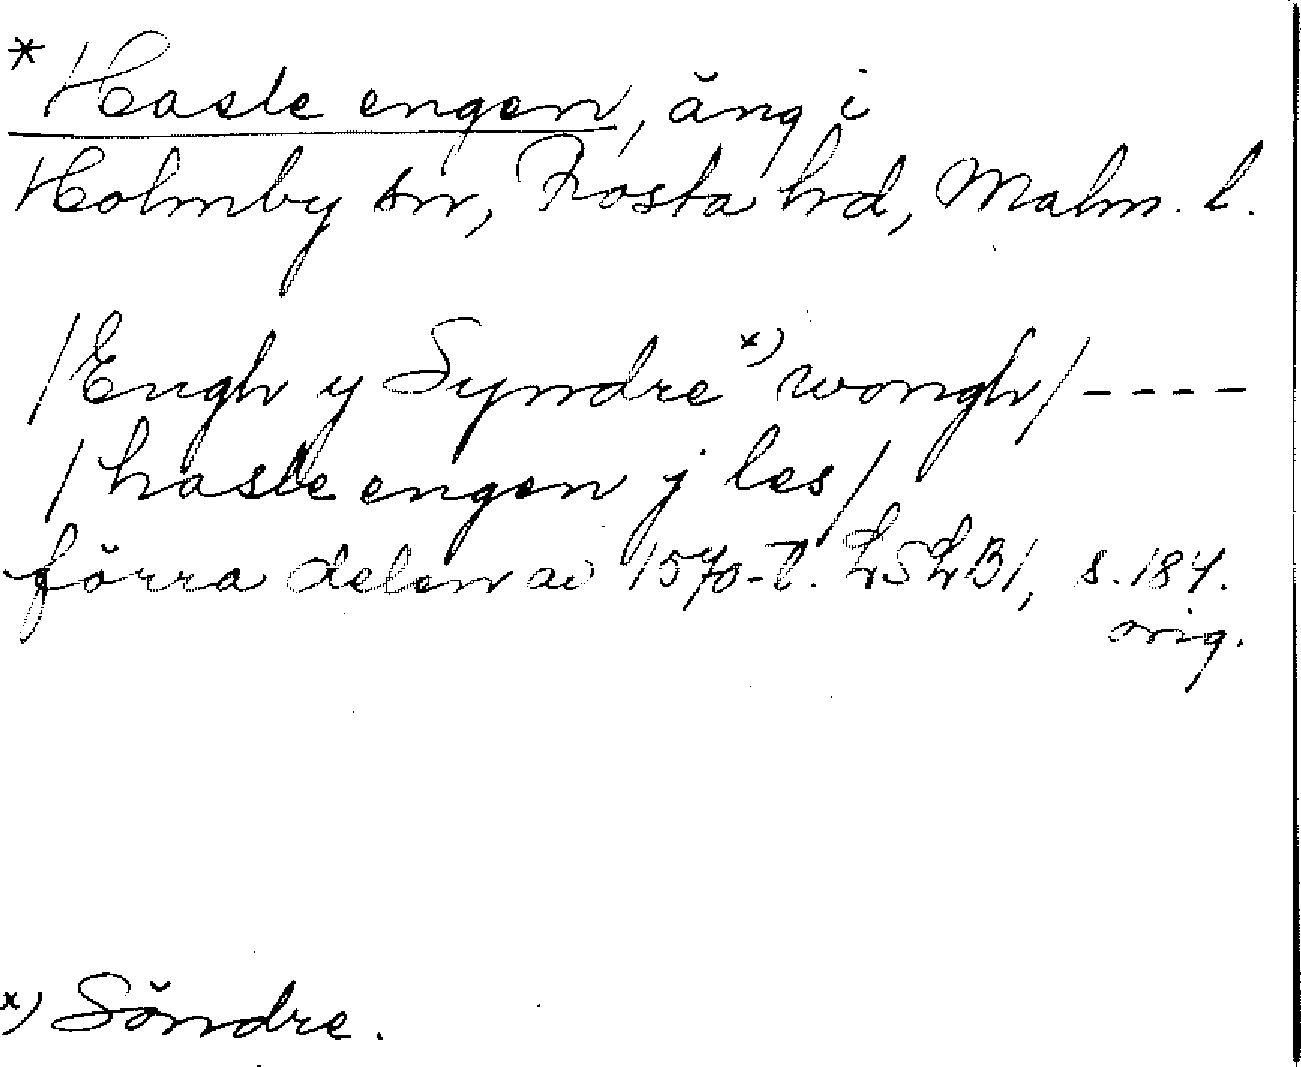 * Hasle engen, äng i
Holmby sn, Frosta hd, Malm. l.
/Engh y Syndre x) wongh/ - - - -
/hasle engen j les/
förra delen av 1570-t. LSLB1, s. 184.
orig.
x) Söndre.